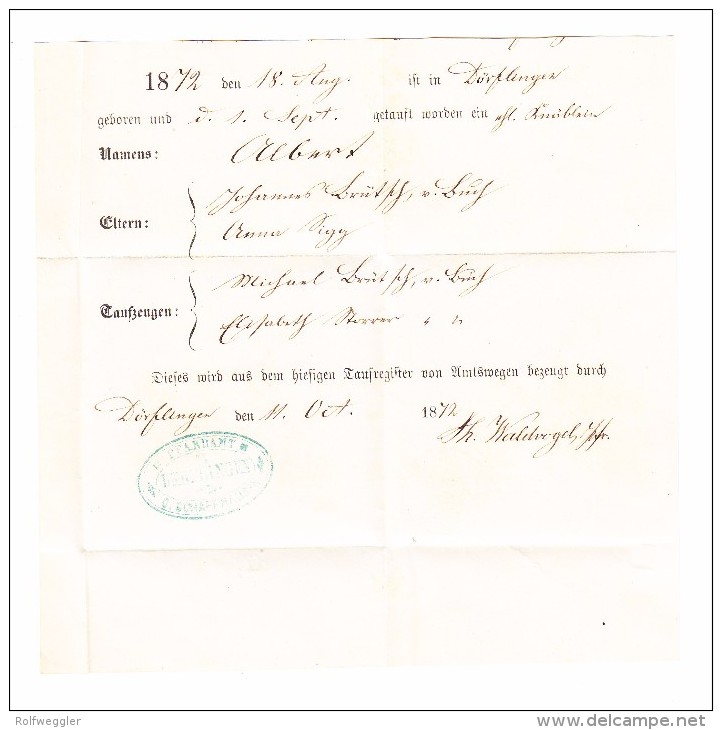 1872 den 18. Aug. ist in Dörflingen
geboren und d. 1. Sept. getauft worden ein ehl. Knäblein
Namens: Albert
Eltern: Johannes Brütsch, v. Buch
Anna Sigg
Taufzeugen: Michael Brütsch, v. Buch
Elisabeth Storrer " "
Dieses wird aus dem hiesigen Taufregister von Amtswegen bezeugt durch
Dörflingen den 11. Oct. 1872
Th. Waldvogel, Pfr.
PFARRAMT
DÖRFLINGEN
Rolfweggler
www.delcampe.net